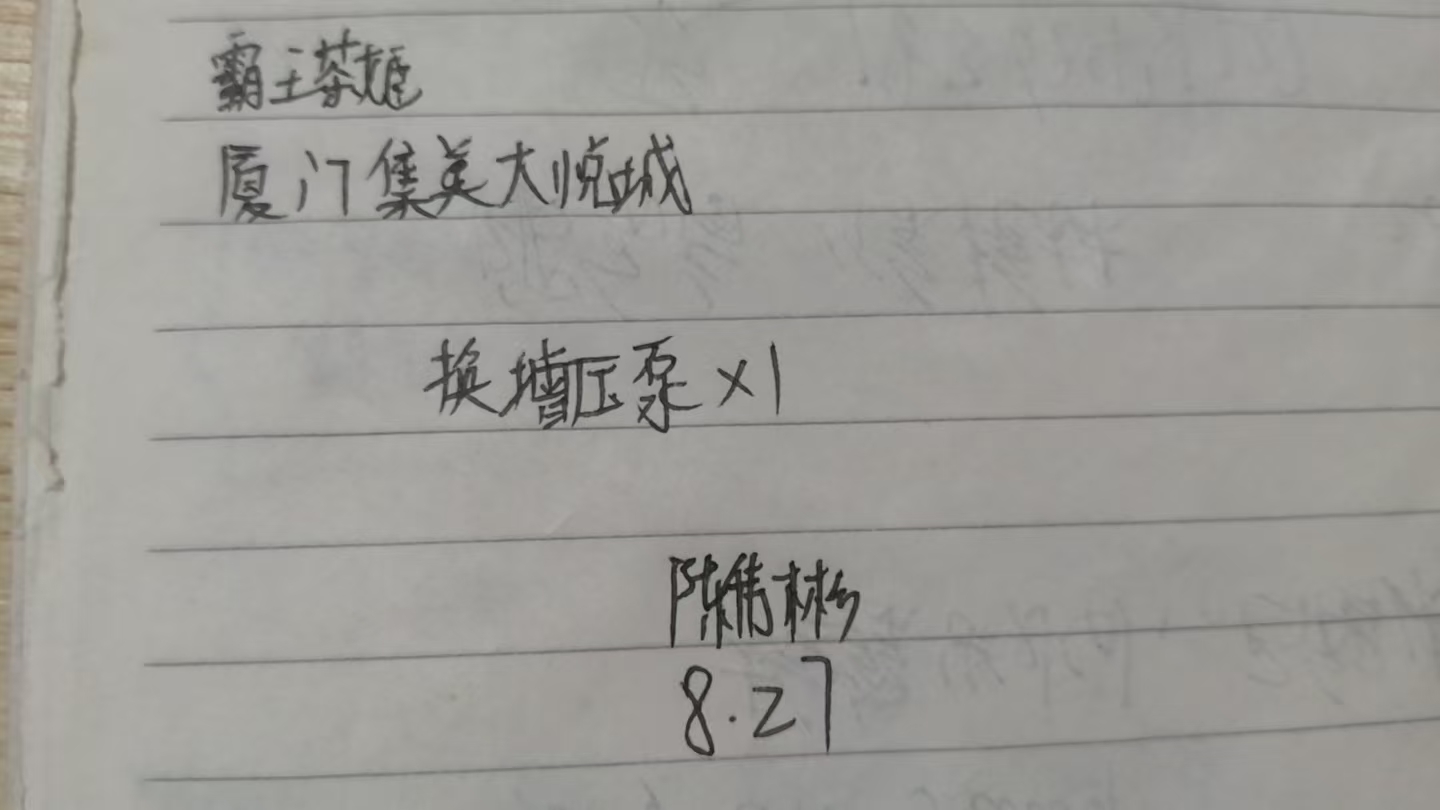 霸王茶姬
厦门集美大悦城
换增压泵×1
陈伟彬
8.27